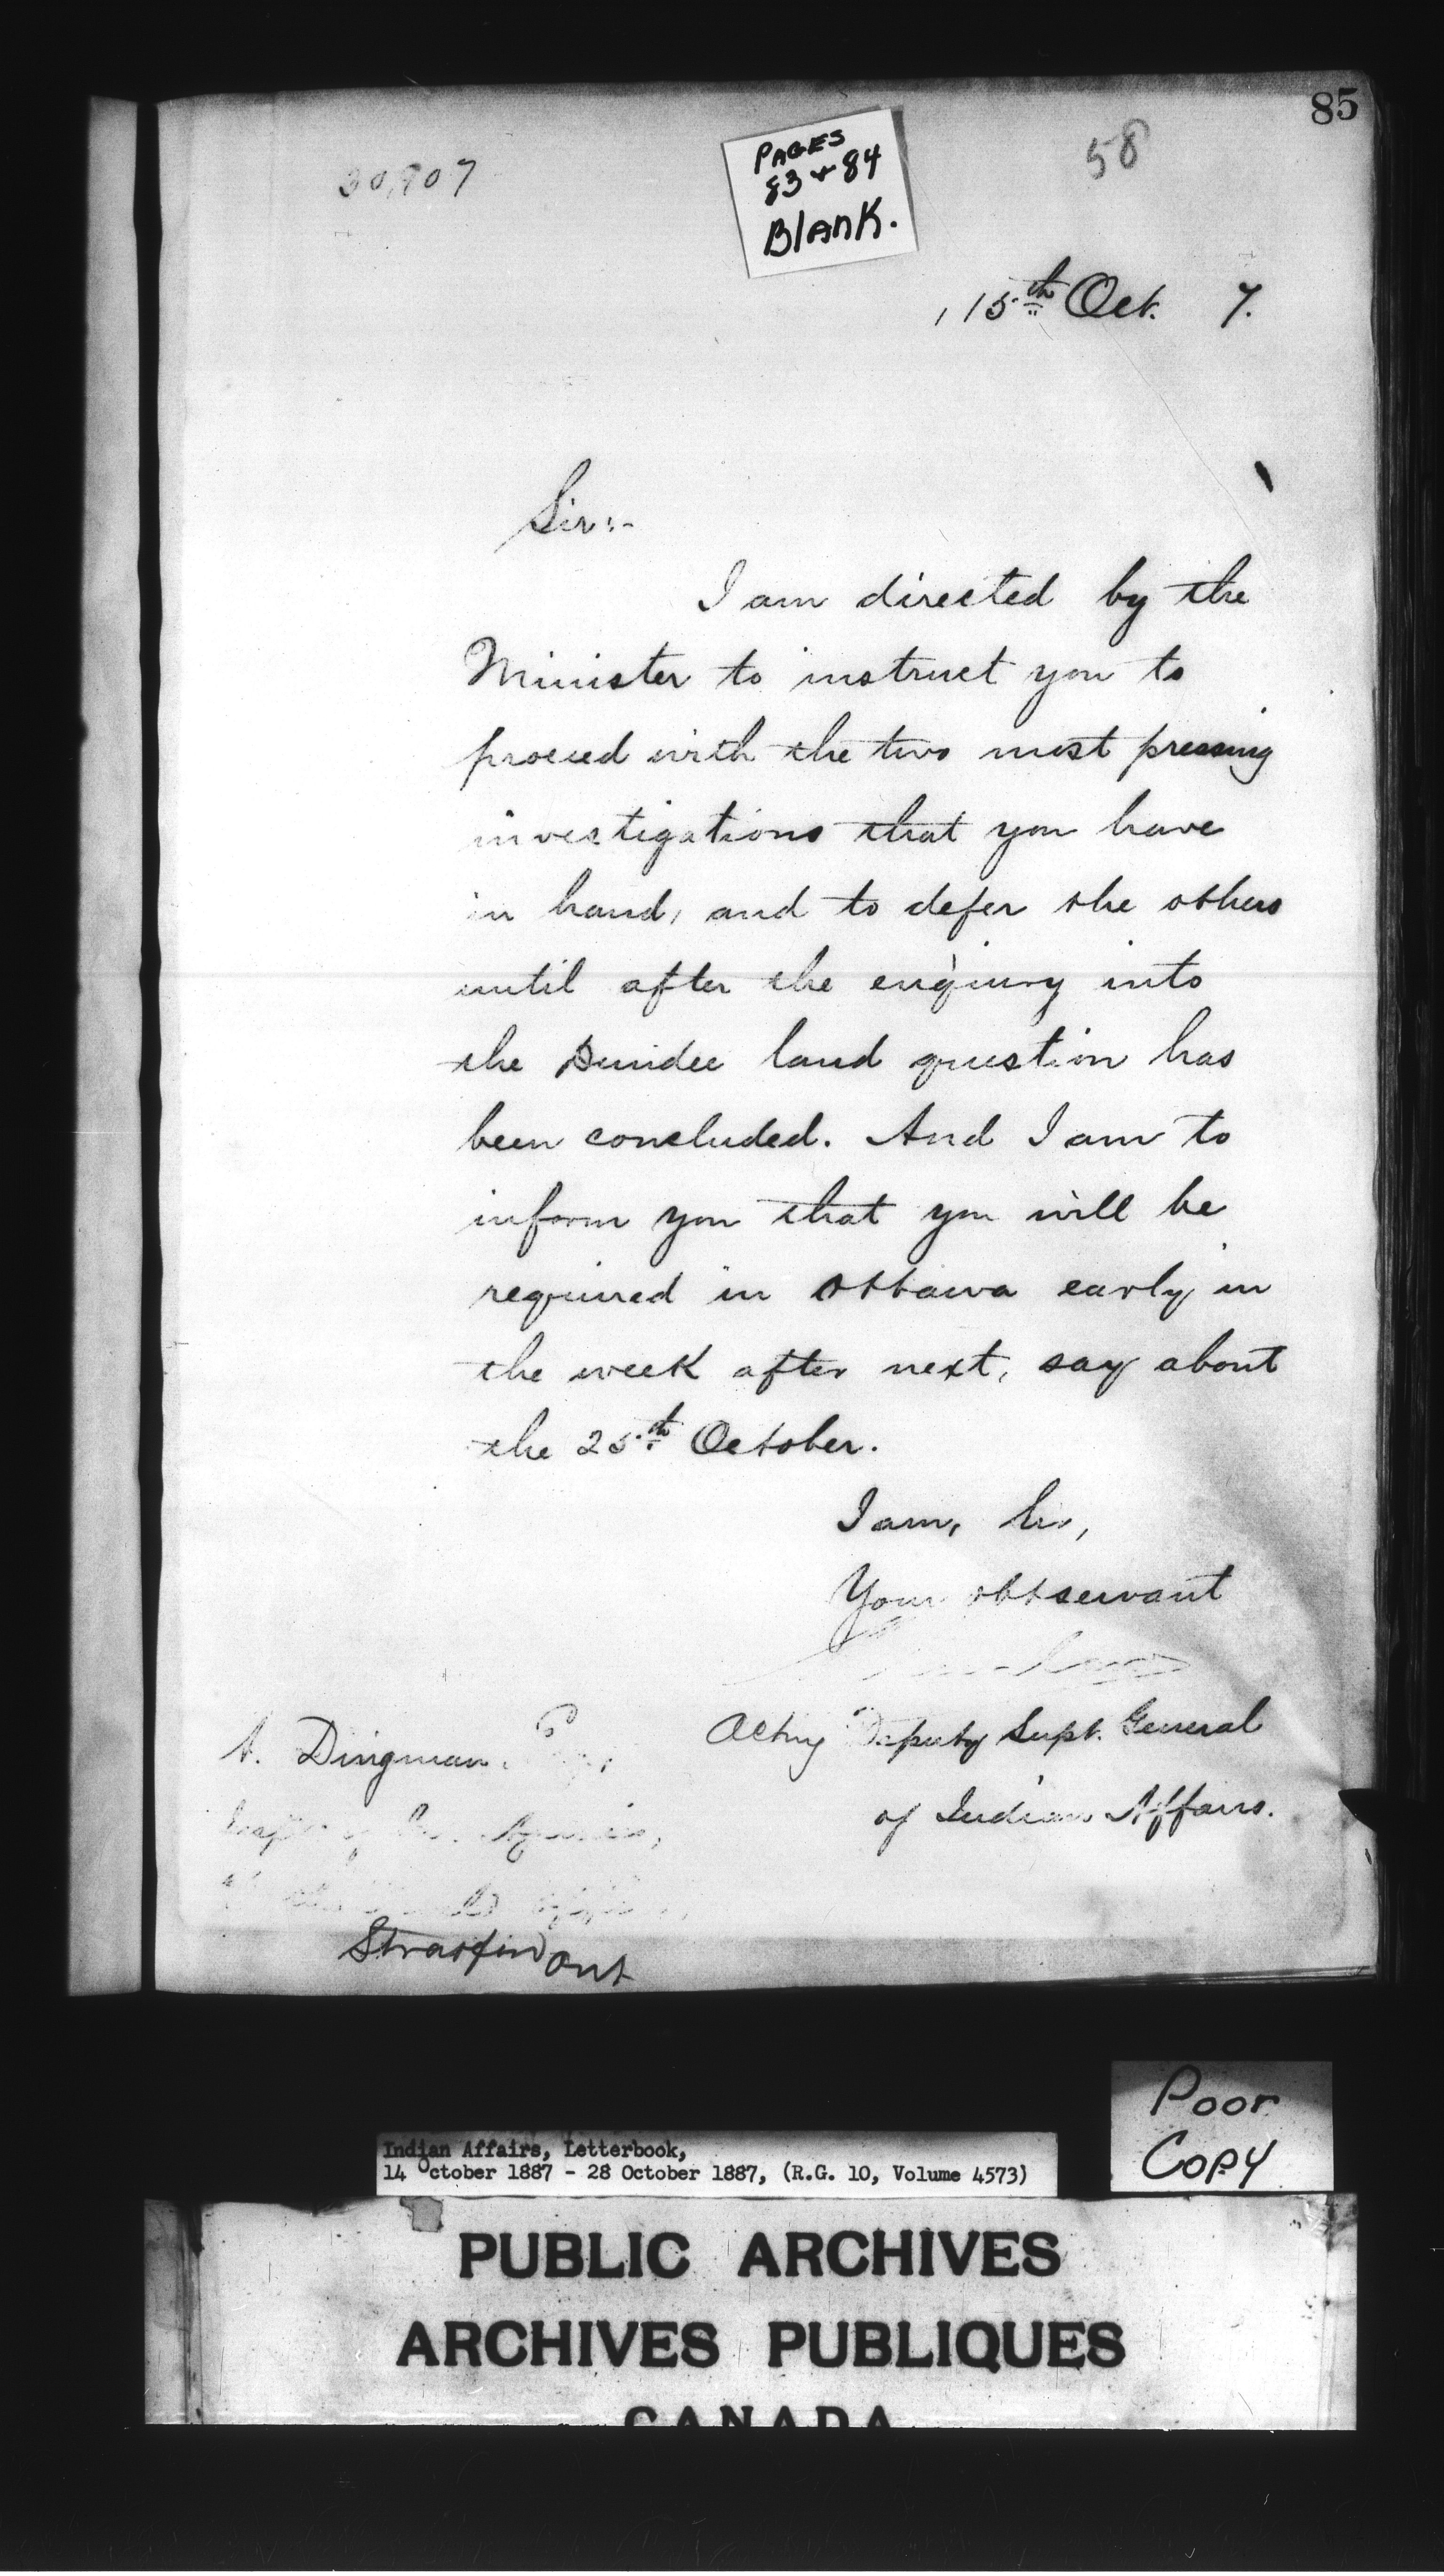 85
58
30,807
PAGES
83 + 84
BlANK.
15th Oct. 7.
Sir:-
I am directed by the
Minister to instruct you to
proceed with the two most pressing
investigations that you have
in hand, and to defer the others
until after the enquiry into
the Dundee land question has
been concluded. And I am to
inform you that you will be
required in Ottawa early in
the week after next, say about
the 25th October.
I am, Sir,
Your obt servant
Acting Deputy Supt. General
of Indian Affairs.
A. Dingman,
Stratford Ont
Poor
COPY
Indian Affairs, Letterbook,
14 October 1887 - 28 October 1887, (R.G. 10, Volume 4573)
PUBLIC ARCHIVES
ARCHIVES PUBLIQUES
CANADA